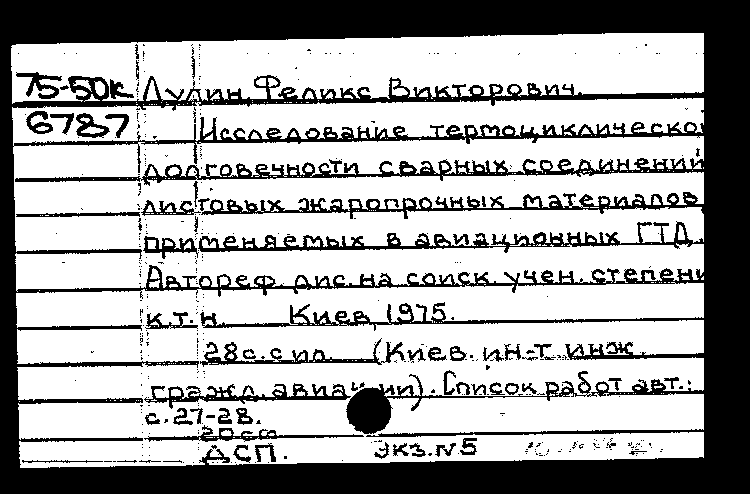 75-50к Лулин, Феликс Викторович.
6787 Исследование термоциклической
долговечности сварных соединений
листовых жаропрочных материалов,
применяемых в авиационных ГТД.
Автореф. дис. на соиск. учен. степени
к.т.н. Киев, 1975.
28с. с ил. (Киев. ин-т инж.
гражд. авиации). Список работ авт.:
с. 27-28.
20 см
ДСП. экз. №5